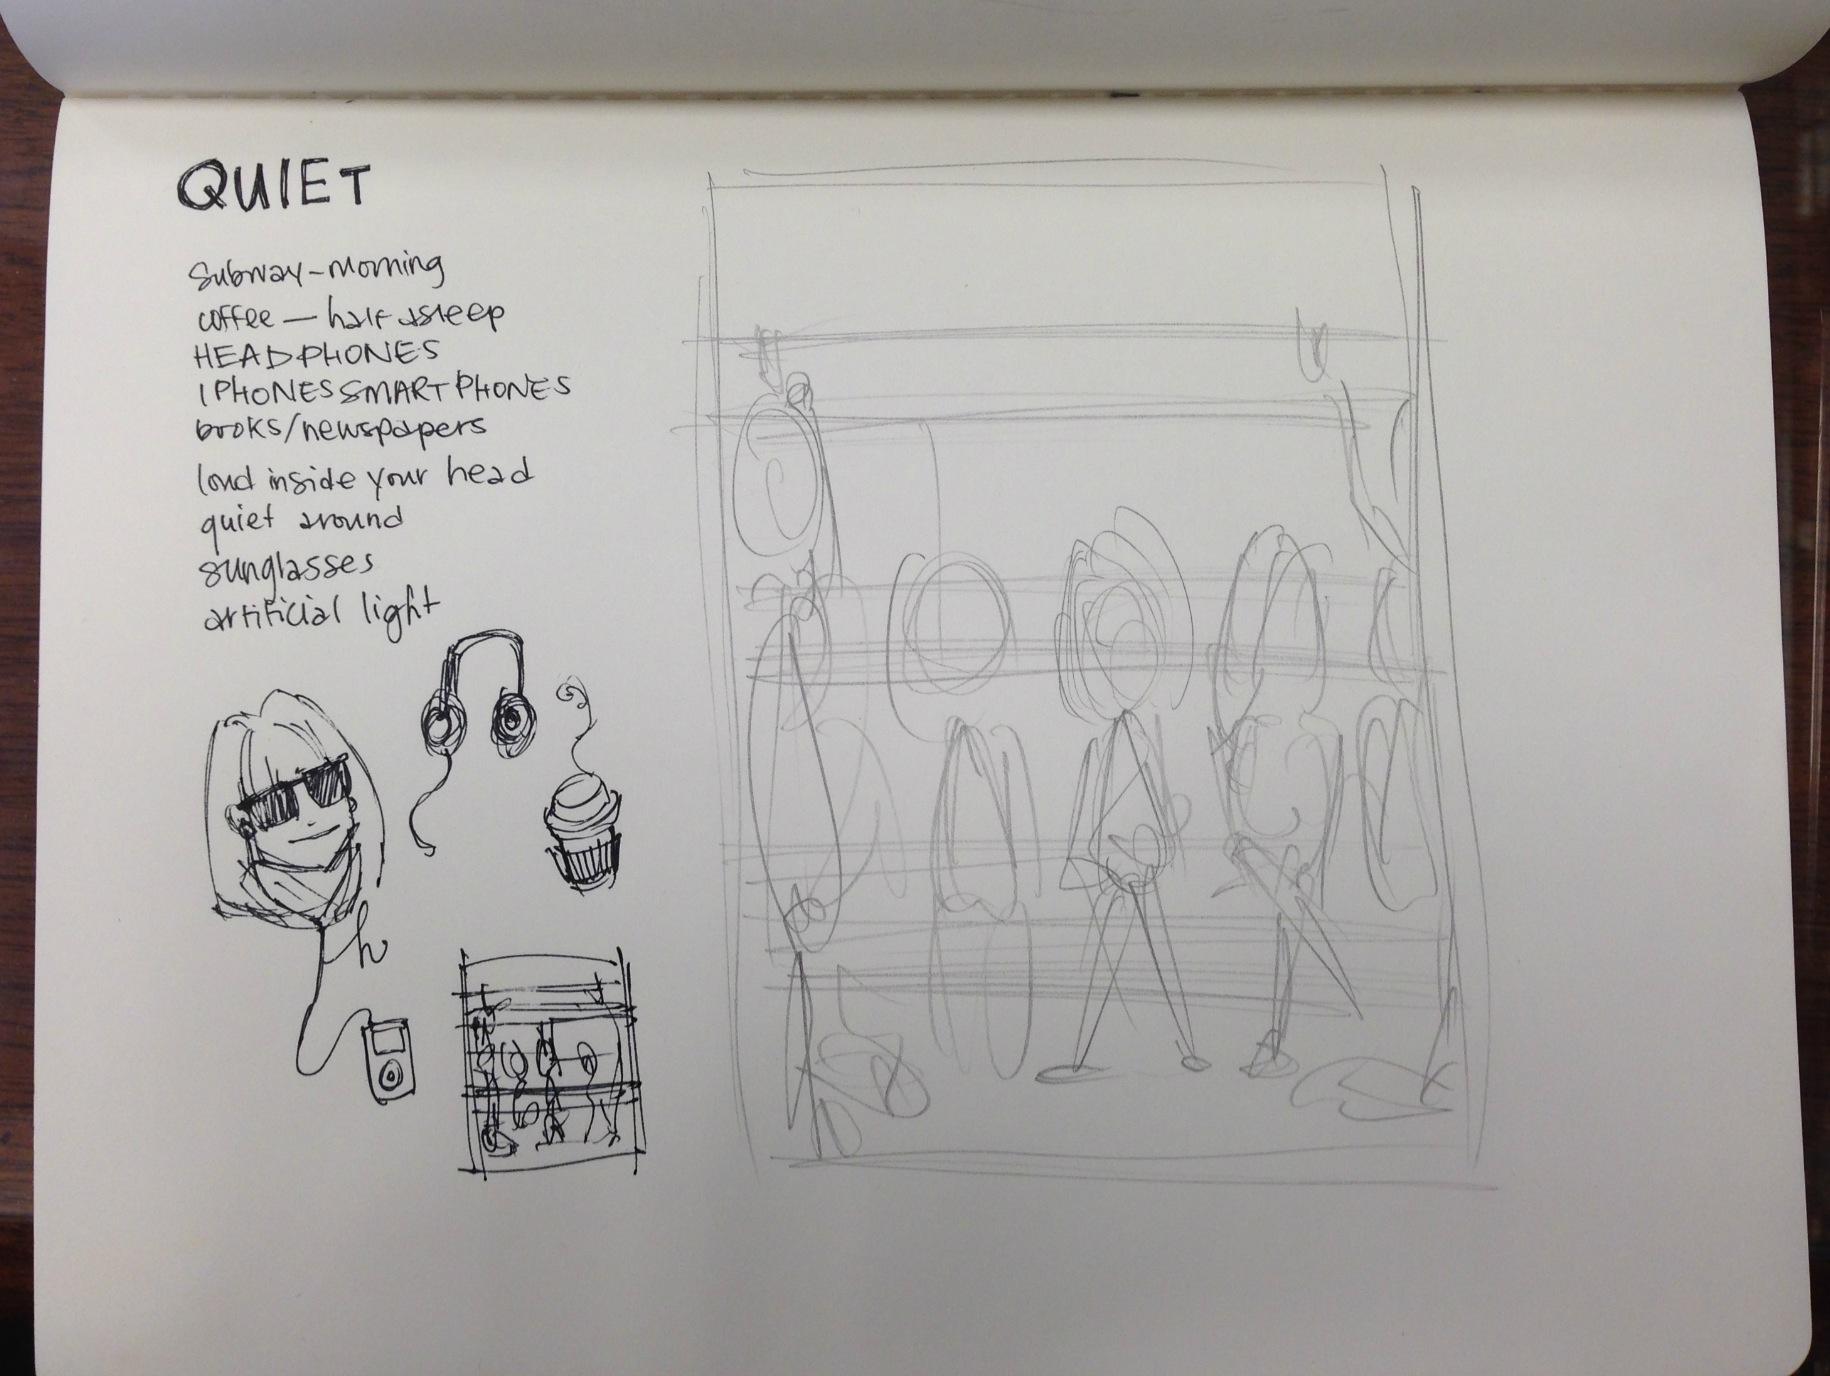 QUIET
Subway-morning
coffee — half asleep
HEADPHONES
IPHONES SMARTPHONES
books/newspapers
loud inside your head
quiet around
sunglasses
artificial light